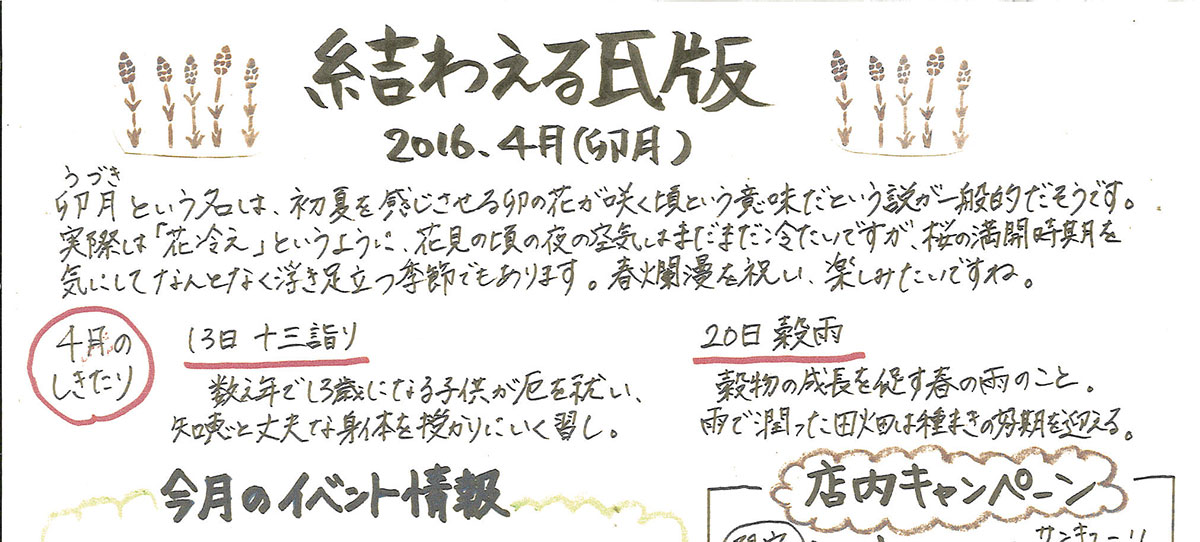 結わえる氏版
2016、4月(卯月)
うづき
卯月という名は、初夏を感じさせる卯の花が咲く頃という意味だという説が一般的だそうです。
実際は「花冷え」というように、花見の頃の夜の空気はまだまだ冷たいですが、桜の満開時期を
気にしてなんとなく浮き足立つ季節でもあります。春爛漫を祝い、楽しみたいですね。
4月の
しきたり
13日 十三詣り
数え年で13歳になる子供が厄を祓い、
知恵と丈夫な身体を授かりにいく習し。
20日 穀雨
穀物の成長を促す春の雨のこと。
雨で潤った田畑は種まきの好期を迎える。
今月のイベント情報
店内キャンペーン